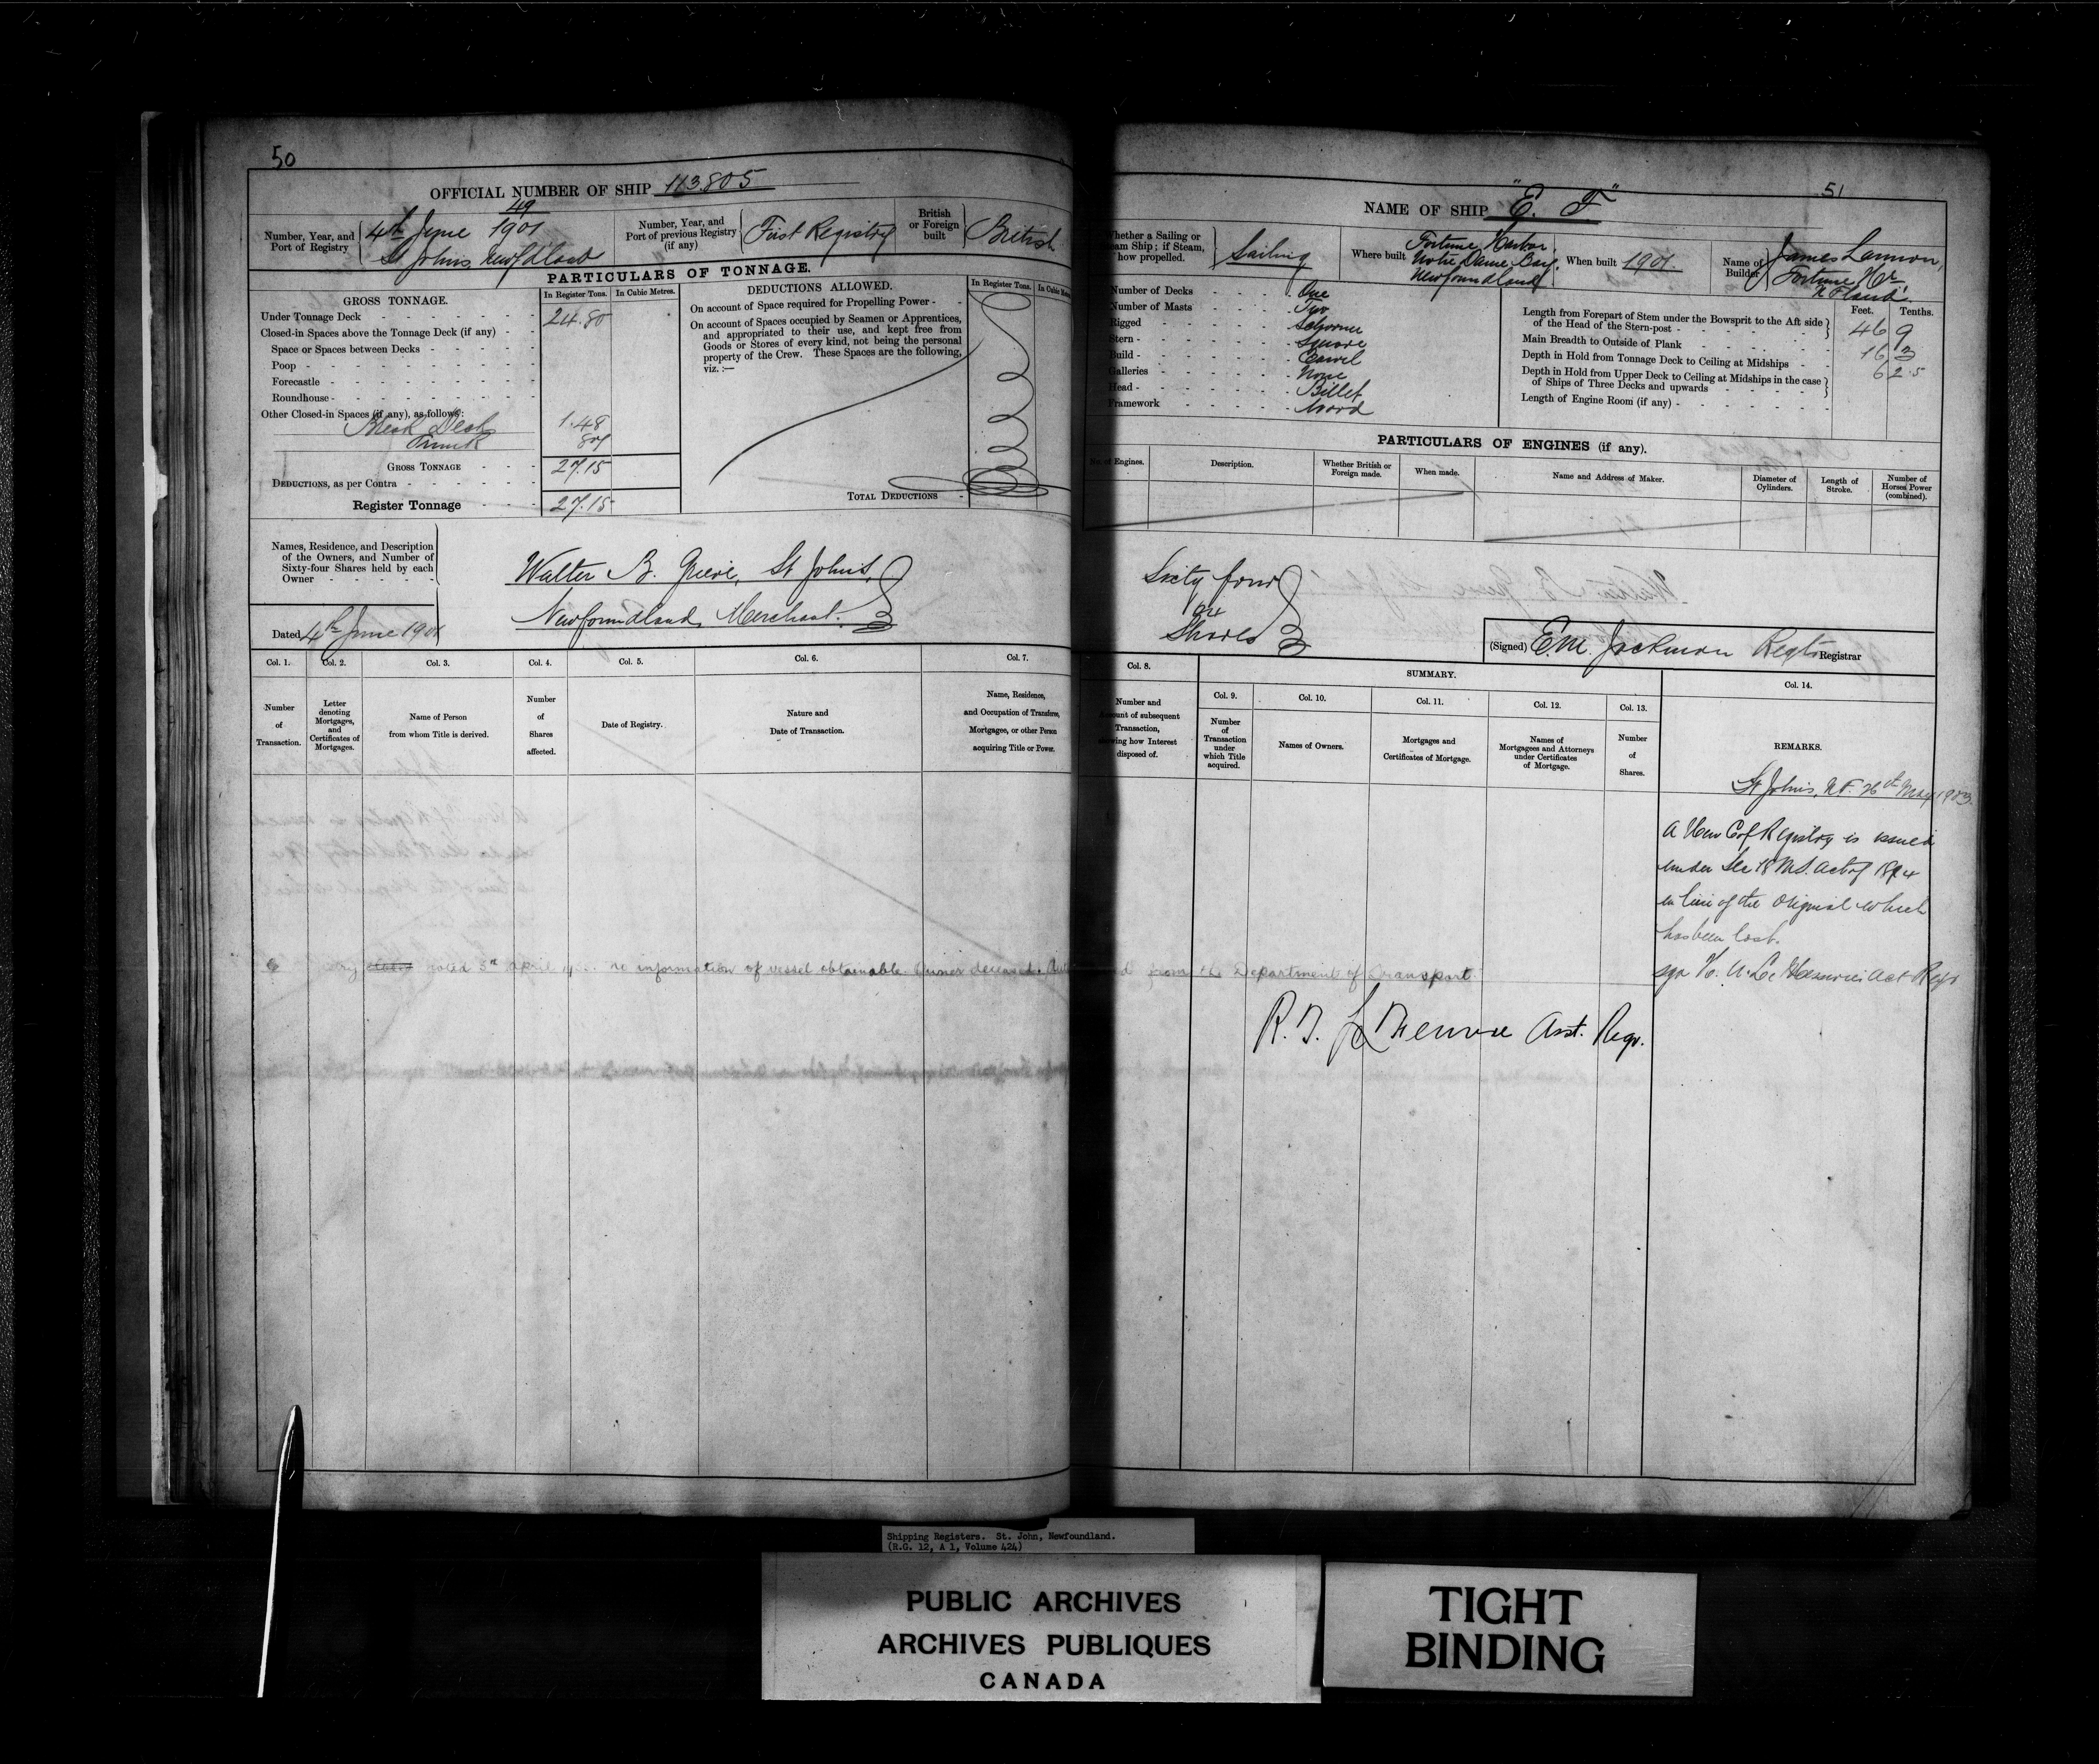 50
OFFICIAL NUMBER OF SHIP 113.805
Number, Year, and
Port of Registry
49
4th June 1901
St Johns, Newfdland
Number, Year, and
Port of previous Registry
(if any)
First Registry
British
or Foreign
built
British
PARTICULARS OF TONNAGE.
GROSS TONNAGE.
In Register Tons.
In Cubic Metres.
Under Tonnage Deck 24.80
Closed-in Spaces above the Tonnage Deck (if any)
Space or Spaces between Decks
Poop
Forecastle
Roundhouse
Other Closed-in Spaces (if any), as follows:
Break Deck 1.48
Trunk .87
GROSS TONNAGE 27.15
DEDUCTIONS, as per Contra
Register Tonnage 27.15
DEDUCTIONS ALLOWED.
In Register Tons.
On account of Space required for Propelling Power
On account of Spaces occupied by Seamen or Apprentices,
and appropriated to their use, and kept free from
Goods or Stores of every kind, not being the personal
property of the Crew. These Spaces are the following,
viz. :—
TOTAL DEDUCTIONS
Names, Residence, and Description
of the Owners, and Number of
Sixty-four Shares held by each
Owner
Walter B. Grieve, St Johns,
Newfoundland, Merchant.
Dated 4th June 1901
Col. 1.
Number
of
Transaction.
Col. 2.
Letter
denoting
Mortgages,
and
Certificates of
Mortgages.
Col. 3.
Name of Person
from whom Title is derived.
Col. 4.
Number
of
Shares
affected.
Col. 5.
Date of Registry.
Col. 6.
Nature and
Date of Transaction.
Col. 7.
Name, Residence,
and Occupation of Transferee,
Mortgagee, or other Person
acquiring Title or Power.
51
NAME OF SHIP "E. F"
Whether a Sailing or
Steam Ship; if Steam,
how propelled.
Sailing
Where built
Fortune Harbor,
Notre Dame Bay,
Newfoundland
When built 1901.
Name of
Builder
James Lannon,
Fortune Hr.
N'Fland.
Number of Decks One
Number of Masts Two
Rigged Schooner
Stern Square
Build Carvel
Galleries None
Head Billet
Framework Wood
Feet.
Tenths.
Length from Forepart of Stem under the Bowsprit to the Aft side
of the Head of the Stern-post 46 9
Main Breadth to Outside of Plank 16 3
Depth in Hold from Tonnage Deck to Ceiling at Midships 6 2.5
Depth in Hold from Upper Deck to Ceiling at Midships in the case
of Ships of Three Decks and upwards
Length of Engine Room (if any)
PARTICULARS OF ENGINES (if any).
No. of Engines.
Description.
Whether British or
Foreign made.
When made.
Name and Address of Maker.
Diameter of
Cylinders.
Length of
Stroke.
Number of
Horses Power
(combined).
Sixty four
64
Shares
(Signed) E.M. Jackman Regtr Registrar
Col. 8.
Number and
Amount of subsequent
Transaction,
showing how Interest
disposed of.
SUMMARY.
Col. 9.
Number
of
Transaction
under
which Title
acquired.
Col. 10.
Names of Owners.
Col. 11.
Mortgages and
Certificates of Mortgage.
Col. 12.
Names of
Mortgagees and Attorneys
under Certificates
of Mortgage.
Col. 13.
Number
of
Shares.
Col. 14.
REMARKS.
St Johns, N.F. 26th May 1903.
A New C of Registry is issued
under Sec 18 M.S. Act of 1894
in lieu of the original which
has been lost.
Act Regr
5th April no information of vessel obtainable. Owner deceased. from the Department of Transport.
Asst. Regr.
Shipping Registers. St. John, Newfoundland.
(R.G. 12, A 1, Volume 424)
PUBLIC ARCHIVES
ARCHIVES PUBLIQUES
CANADA
TIGHT
BINDING